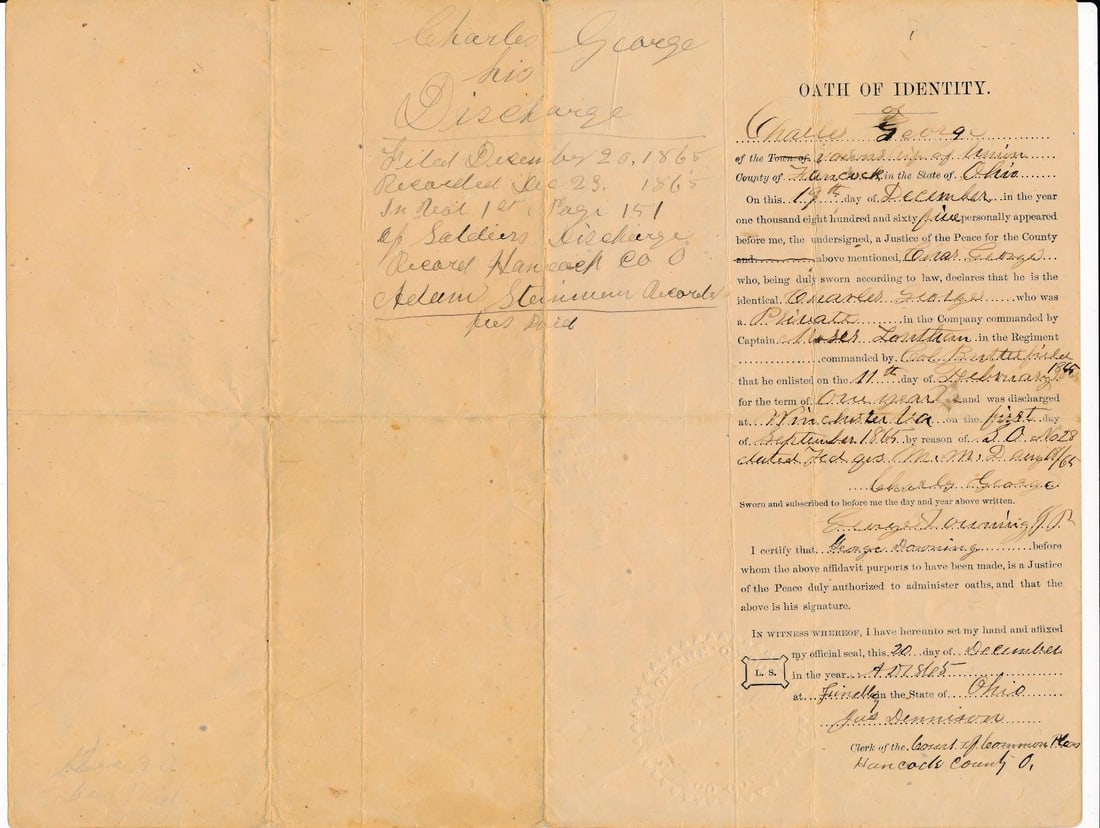 Charles George
his
Discharge
Filed December 20, 1865
Recorded Dec 23, 1865
In Vol 1st Page 151
of Soldiers Discharge
Record Hancock Co O
Adam Steinman Recorder
fees Paid
OATH OF IDENTITY.
of
Charles George
of the Town of township of Union
County of Hancock in the State of Ohio
On this 19th day of December in the year
one thousand eight hundred and sixty five personally appeared
before me, the undersigned, a Justice of the Peace for the County
and above mentioned, Char George
who, being duly sworn according to law, declares that he is the
identical Charles George who was
a Private in the Company commanded by
Captain Moser Louthan in the Regiment
commanded by Col Butterfield
that he enlisted on the 11th day of February 1865
for the term of one year and was discharged
at Winchester Va on the first day
of September 1865 by reason of S.O. No 28
dated Hd qrs M.M.D. aug 18/65
Charls George
Sworn and subscribed to before me the day and year above written.
George Downing JP
I certify that George Downing before
whom the above affidavit purports to have been made, is a Justice
of the Peace duly authorized to administer oaths, and that the
above is his signature.
IN WITNESS WHEREOF, I have hereunto set my hand and affixed
my official seal, this 20 day of December
L. S. in the year AD 1865
at Findlay in the State of Ohio
Jas Dennison
Clerk of the Court of Common Pleas
Hancock County O,